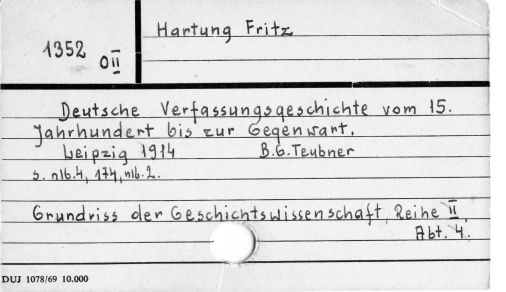 Hartung Fritz
1352 OII
Deutsche Verfassungsgeschichte vom 15.
Jahrhundert bis zur Gegenwart.
Leipzig 1914 B.G.Teubner
s. nlb.4, 174, nlb.2.
Grundriss der Geschichtswissenschaft, Reihe II,
Abt. 4.
DUJ 1078/69 10.000